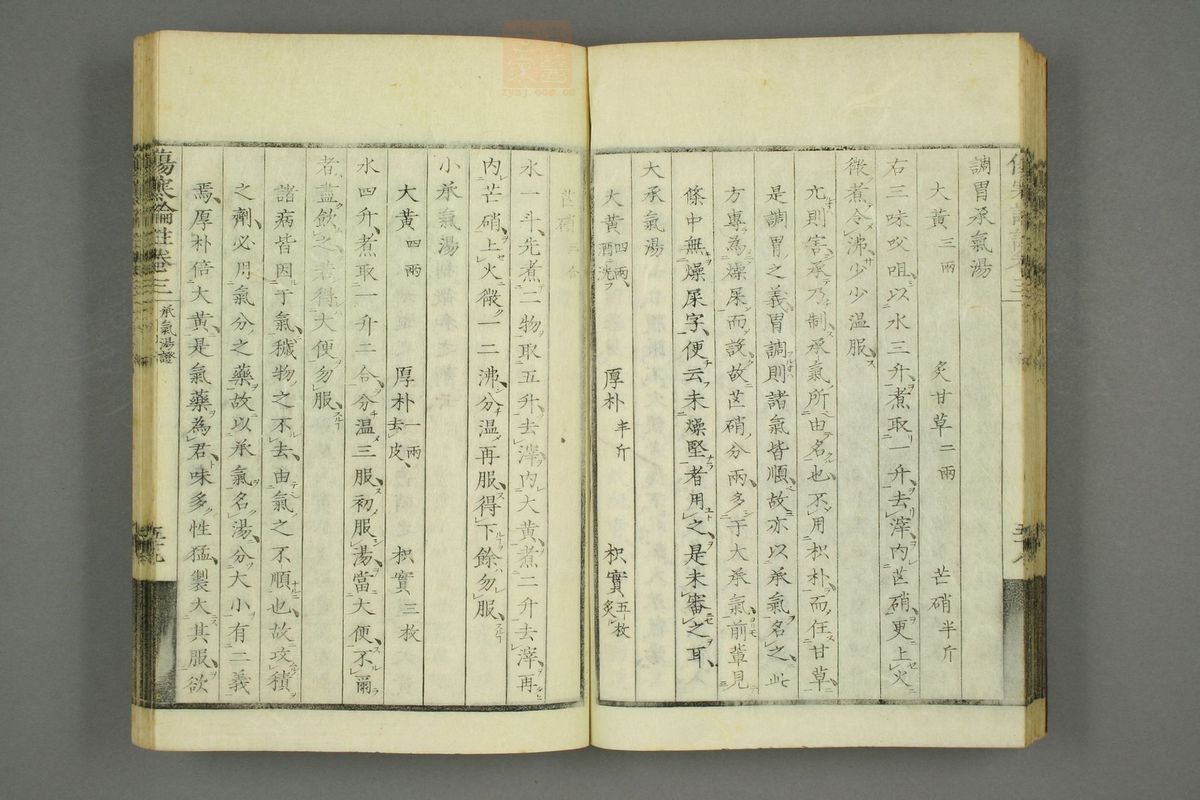 調胃承氣湯
大黃三兩 炙甘草二兩 芒硝半斤
右三味㕮咀以水三升煮取一升去滓內芒硝更上火
微煮令沸少少溫服
亢則害承乃制承氣所由名也不用枳朴而任甘草
是調胃之義胃調則諸氣皆順故亦以承氣名之此
方專為燥屎而設故芒硝分兩多于大承氣前輩見
條中無燥屎字便云未燥堅者用之是未審之耳
大承氣湯
大黃四兩酒洗 厚朴半斤 枳實五枚炙
芒硝三合
水一斗先煮二物取五升去滓內大黃煮二升去滓再
內芒硝上火微一二沸分溫再服得下餘勿服
小承氣湯
大黃四兩 厚朴一兩去皮 枳實三枚
水四升煮取一升二合分溫三服初服湯當大便不爾
者盡飲之若得大便勿服
諸病皆因于氣穢物之不去由氣之不順也故攻積
之劑必用氣分之藥故以承氣名湯分大小有二義
焉厚朴倍大黃是氣藥為君味多性猛製大其服欲
傷寒論註卷三 承氣湯證 五十九